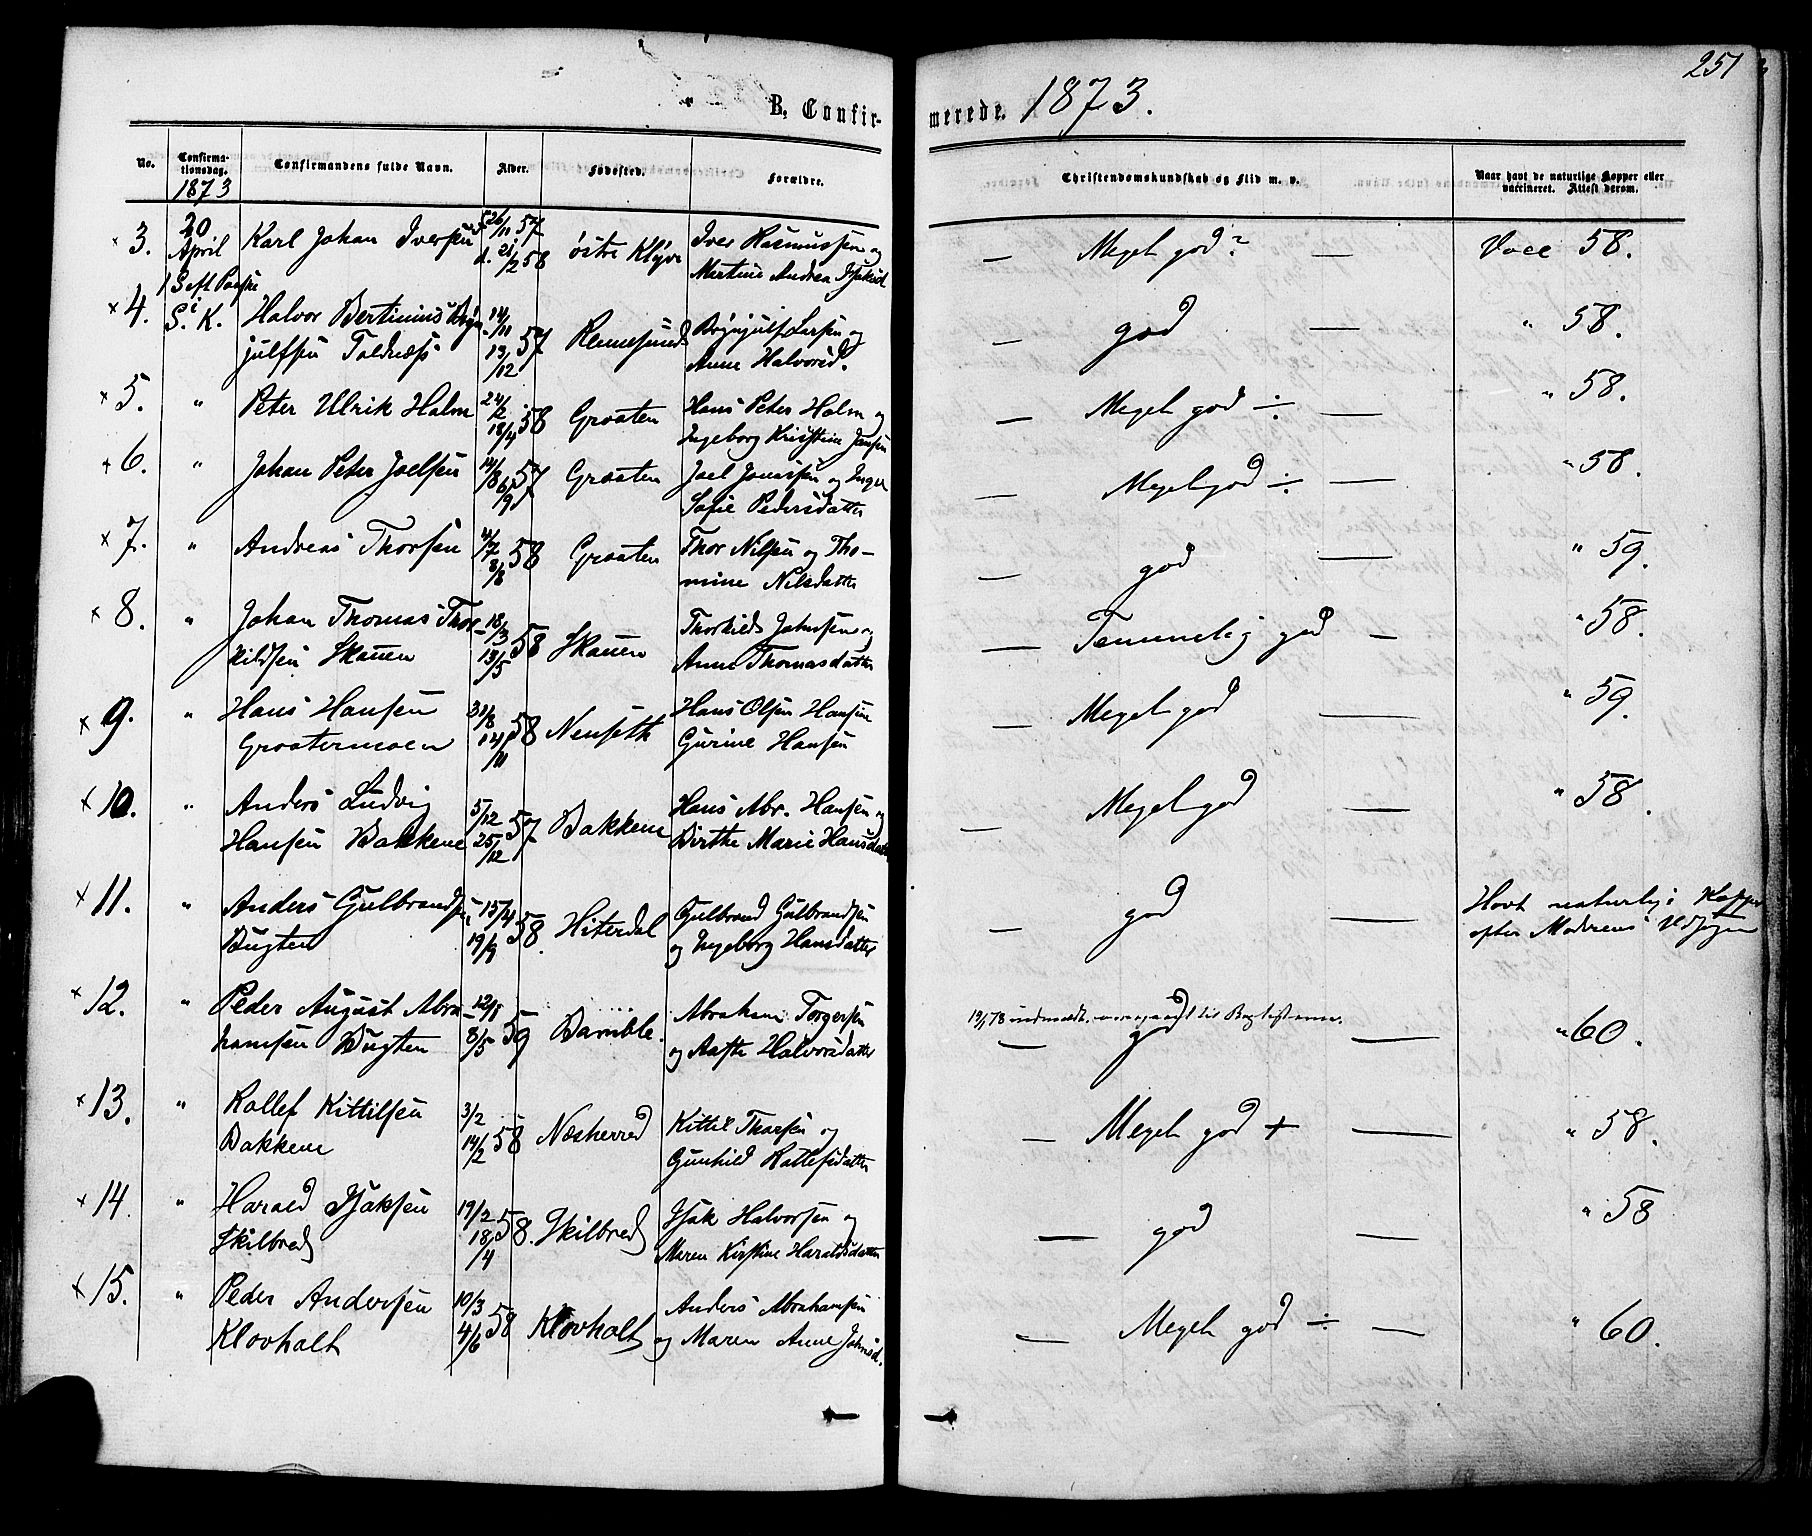 251
B, Confir-
merede. 1873.
No.
Confirma-
tionsdag.
1873
Confirmandens fulde Navn.
Alder.
Fødested.
Forældre.
Christendomskundskab og Flid m. v.
Naar havt de naturlige Kopper eller
vaccineret. Attest derom.
3. 20 Karl Johan Iversen f. 26/11 57 østre Klyve Iver Rasmussen og — Meget god? — Vacc 58.
April d. 21/2 58 Martine Andrea Isaksd
1 S eft Paaske
4. S. i K. Halvor Bertinius Bryn- 14/11 57 Brynjulf Larsen og — god — " 58.
julfsen Toldnæss 13/12 Anne Halvorsd.
5. " Peter Ulrik Holm 24/2 58 Graaten Hans Peter Holm og — Meget god ÷ — " 58.
18/4 Ingeborg Kristine Jansen
6. " Johan Peter Joelsen 14/8 57 Graaten Joel Jonssen og Inger — Meget god ÷ — " 58.
6/9 Sofie Pedersdatter
7. " Andreas Thorsen 4/7 58 Graaten Thor Nilsen og Tho- — god — " 59.
8/8 mine Nilsdatter
8. " Johan Thomas Thor- 18/3 58 Skauen Thorkild Johnsen og — Temmelig god — " 58.
kildsen Skauen 13/5 Anne Thomasdatter
9. " Hans Hansen 31/8 58 Nenseth Hans Olsen Hansen — Meget god — " 59.
Graatenmoen 14/11 Gurine Hansen
10. " Anders Ludvig 5/12 57 Bakkene Hans Abr. Hansen og — Meget god — " 58.
Hansen Bakkene 25/12 Birthe Marie Hansdatter
11. " Anders Gulbrandsen 15/4 58. Hiterdal Gulbrand Gulbrandsen — god — Havt naturlig Kopper
Bugten 19/9 og Ingeborg Hansdatter efter Moderens Udsigende
12. " Peder August Abra- 12/1 59 Bamble. Abraham Torgersen 19/1 78 indmeldt overgaaet til Baptisterne.
hamsen Bugten 8/5 og Aaste Halvorsdatter — god — " 60.
13. " Rollef Kittilsen 3/2 58 Næsherred Kittil Thorsen og — Meget god + — " 58.
Bakkene 14/2 Gunhild Rollefsdatter
14. " Harald Isaksen 19/2 58. Skilbred Isak Halvorsen og — god — " 58
Skilbred 18/4 Maren Kirstine Haraldsdatter
15. " Peder Andersen 10/3 58 Klovholt Anders Abrahamsen — Meget god ÷ — " 60.
Klovholt 4/6 og Maren Anne Johnsd.